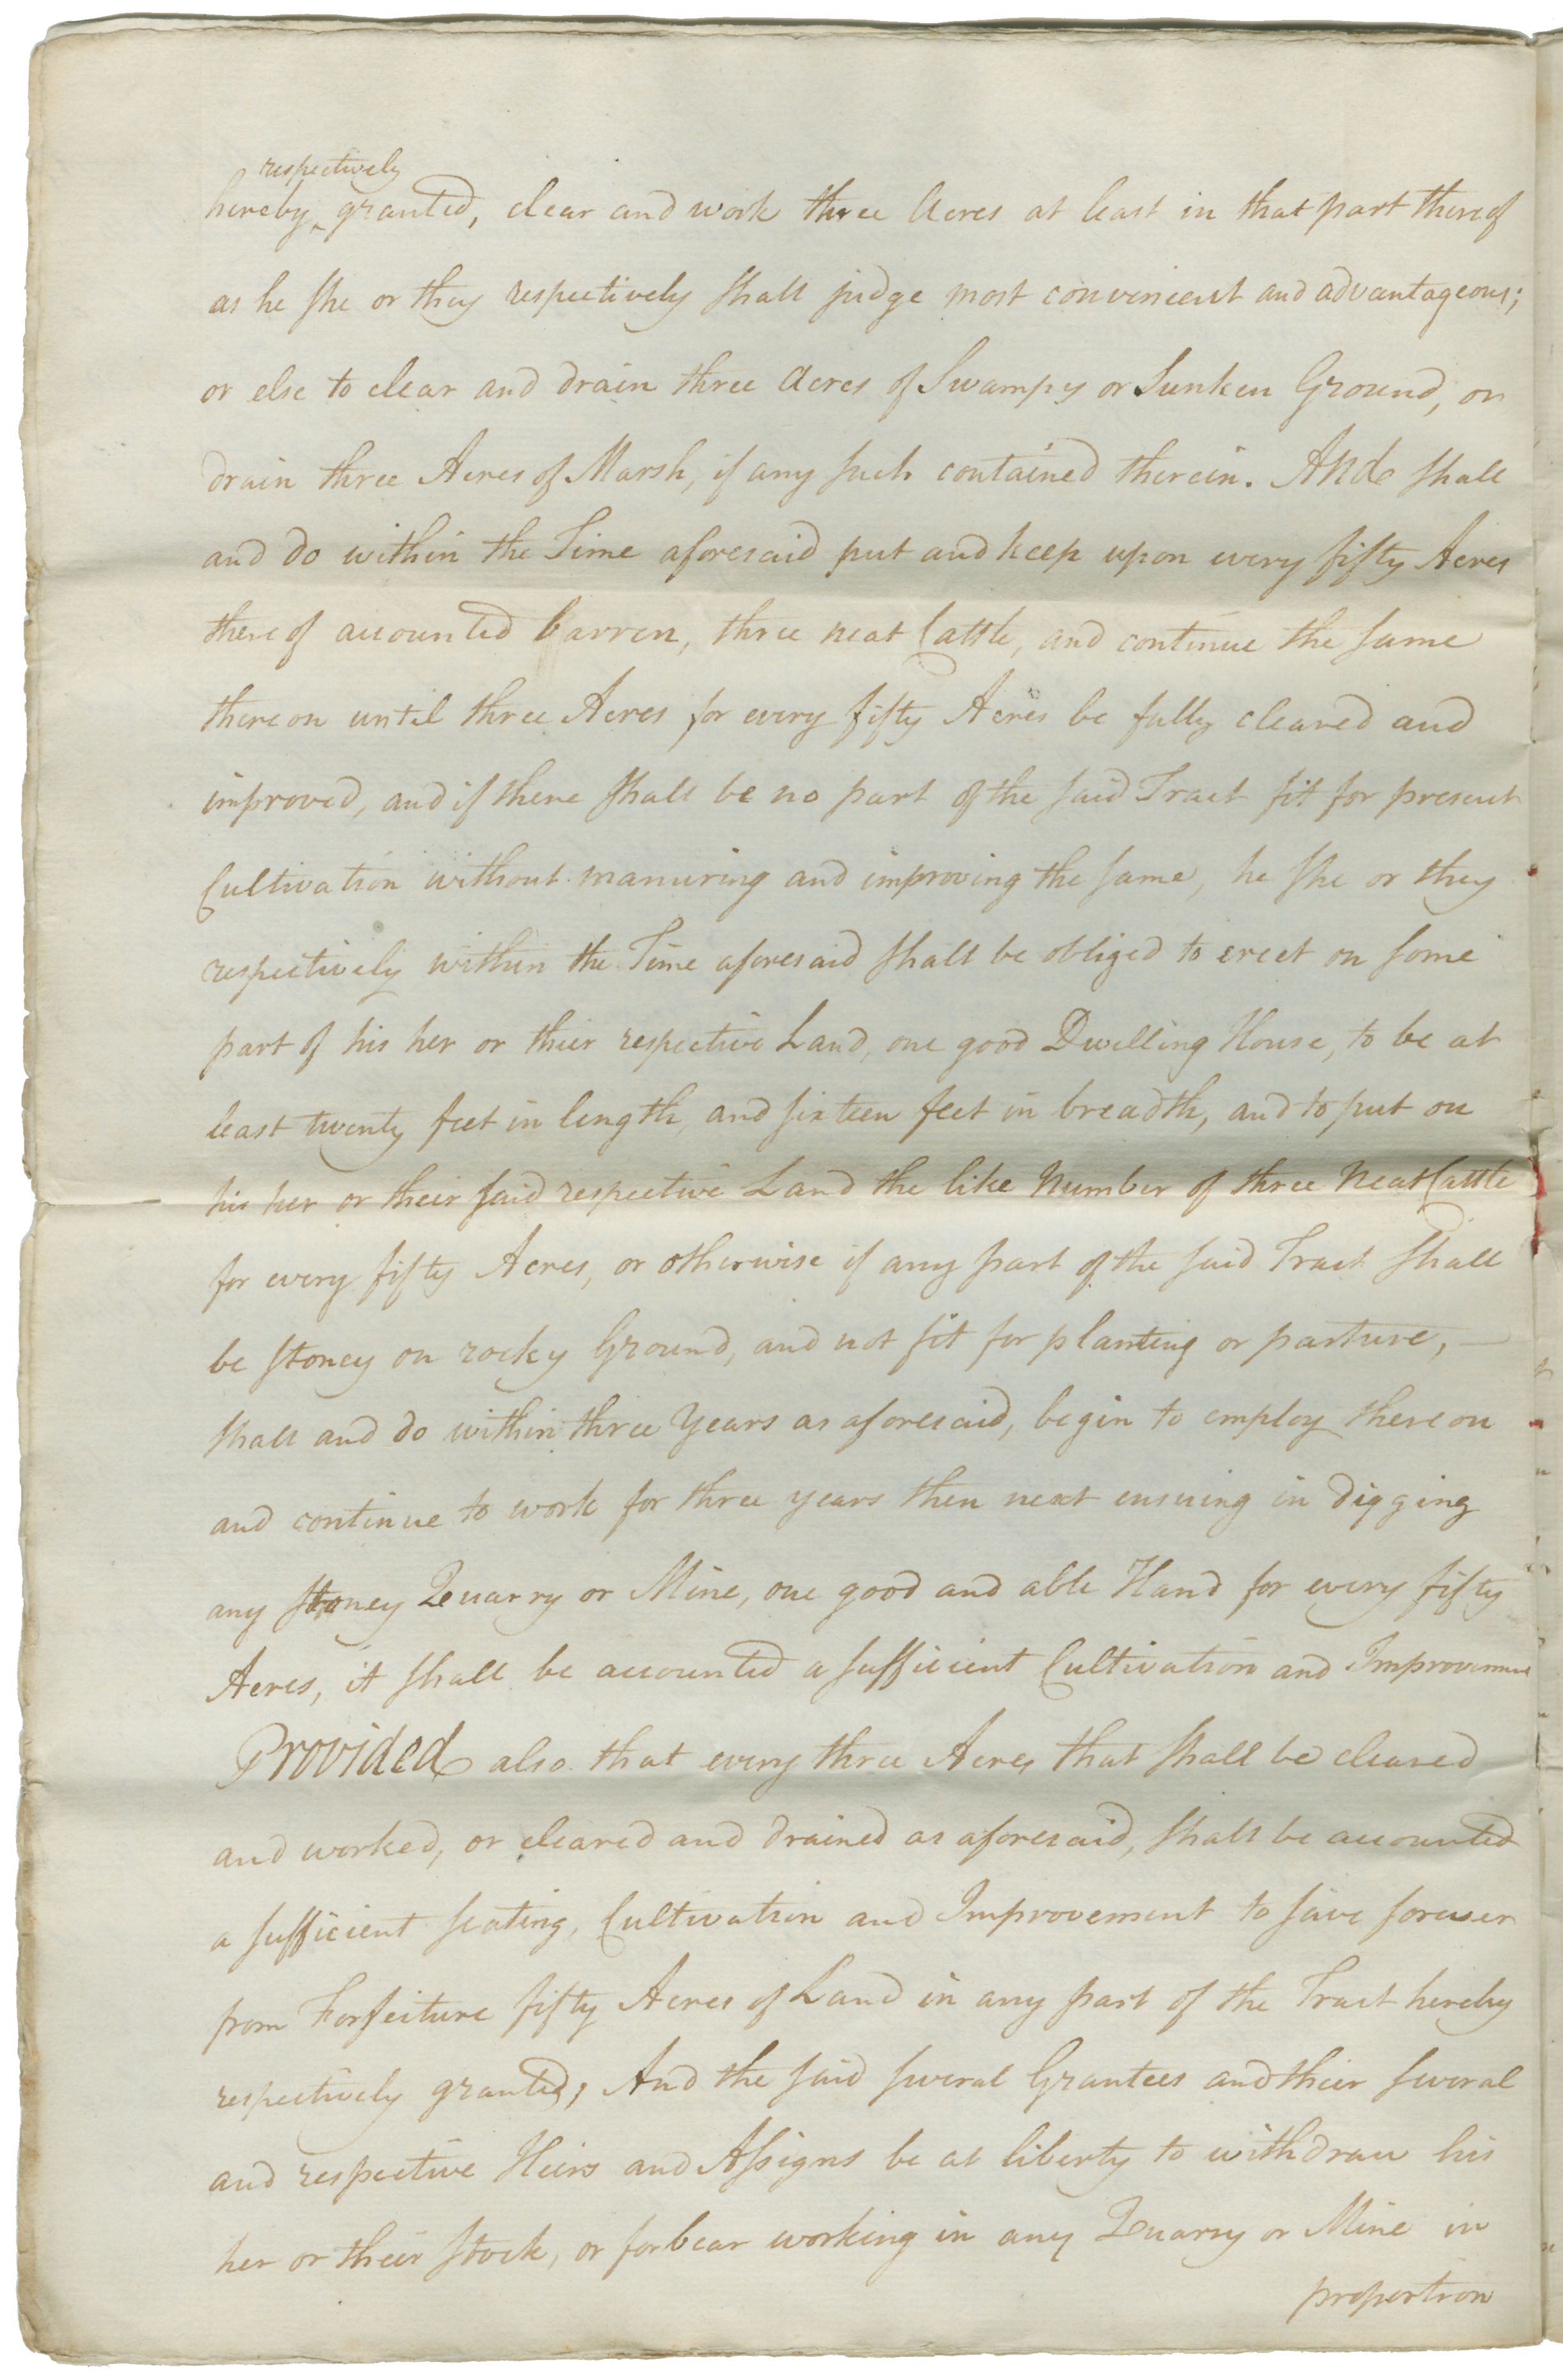 respectively
hereby ‸ granted, clear and work three Acres at least in that part thereof
as he she or they respectively shall judge most convenient and advantageous;
or else to clear and drain three Acres of Swampy or Sunken Ground, or
drain three Acres of Marsh, if any such contained therein. And shall
and do within the Time aforesaid put and keep upon every fifty Acres
thereof accounted barren, three neat Cattle, and continue the same
thereon until three Acres for every fifty Acres be fully cleared and
improved, and if there shall be no part of the said Tract fit for present
Cultivation without manuring and improving the same, he she or they
respectively within the Time aforesaid shall be obliged to erect on some
part of his her or their respective Land, one good Dwelling House, to be at
least twenty feet in length, and sixteen feet in breadth, and to put on
his her or their said respective Land the like Number of three Neat Cattle
for every fifty Acres, or otherwise if any part of the said Tract shall
be stoney or rocky Ground, and not fit for planting or pasture, —
shall and do within three Years as aforesaid, begin to employ thereon
and continue to work for three years then next ensuing in digging
any stoney Quarry or Mine, one good and able Hand for every fifty
Acres, it shall be accounted a sufficient Cultivation and Improvement
Provided also that every three Acres that shall be cleared
and worked, or cleared and drained as aforesaid, shall be accounted
a sufficient seating, Cultivation and Improvement to save forever
from Forfeiture fifty Acres of Land in any part of the Tract hereby
respectively granted; And the said several Grantees and their several
and respective Heirs and Assigns be at liberty to withdraw his
her or their Stock, or forbear working in any Quarry or Mine in
proportion